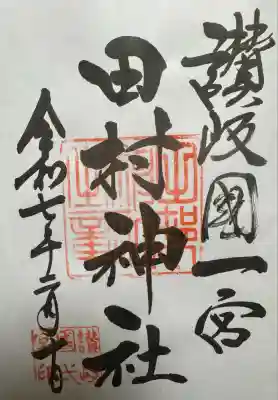 讃岐國一宮
田村神社
令和七年二月十日